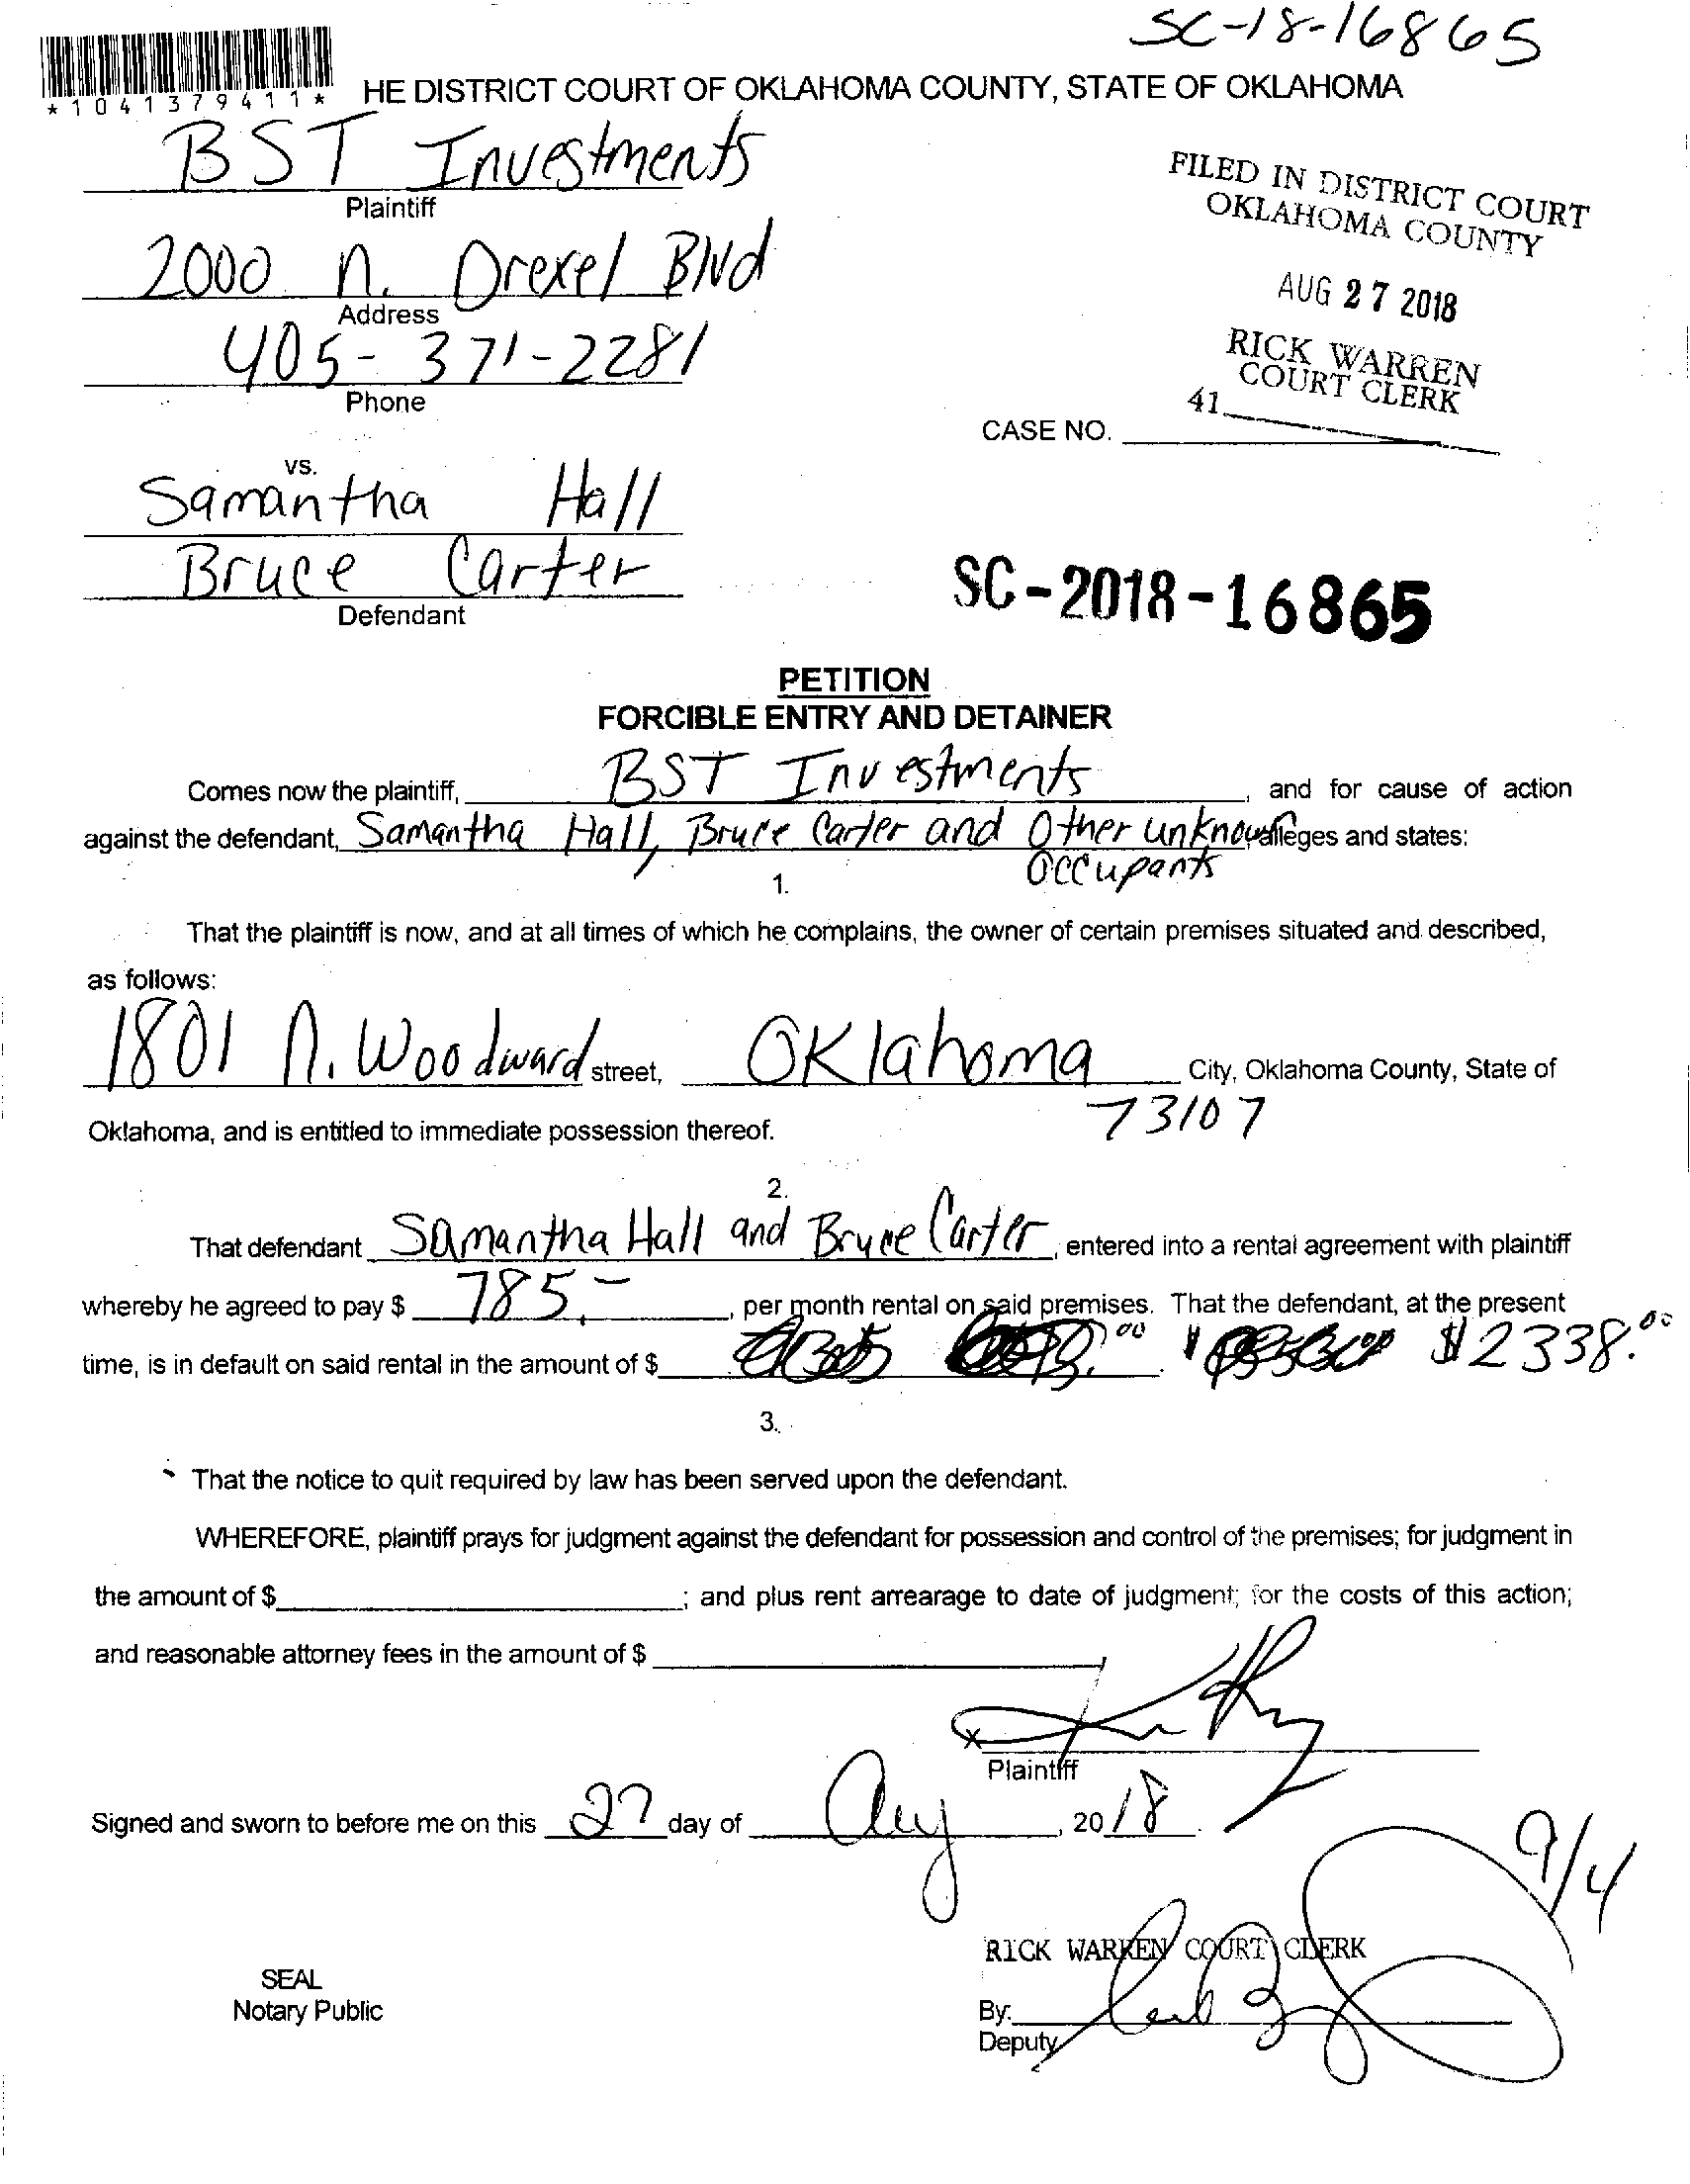 SC-18-16865
*1041379411*
HE DISTRICT COURT OF OKLAHOMA COUNTY, STATE OF OKLAHOMA
BST Investments
Plaintiff
FILED IN DISTRICT COURT
OKLAHOMA COUNTY
2000 N. Drexel Blvd
Address
AUG 27 2018
405-371-2281
Phone
RICK WARREN
COURT CLERK
41
CASE NO.
vs.
Samantha Hall
Bruce Carter
Defendant
SC-2018-16865
PETITION
FORCIBLE ENTRY AND DETAINER
Comes now the plaintiff, BST Investments, and for cause of action
against the defendant, Samantha Hall, Bruce Carter and Other unknown alleges and states:
Occupants
1.
That the plaintiff is now, and at all times of which he complains, the owner of certain premises situated and described,
as follows:
1801 N. Woodward street, Oklahoma City, Oklahoma County, State of
73107
Oklahoma, and is entitled to immediate possession thereof.
2.
That defendant Samantha Hall and Bruce Carter, entered into a rental agreement with plaintiff
whereby he agreed to pay $ 785.-, per month rental on said premises. That the defendant, at the present
time, is in default on said rental in the amount of $ . $2338.00
3.
That the notice to quit required by law has been served upon the defendant.
WHEREFORE, plaintiff prays for judgment against the defendant for possession and control of the premises; for judgment in
the amount of $ ; and plus rent arrearage to date of judgment; for the costs of this action;
and reasonable attorney fees in the amount of $
x
Plaintiff
Signed and sworn to before me on this 27 day of Aug, 2018.
9/4
RICK WARREN COURT CLERK
SEAL
Notary Public
By:
Deputy